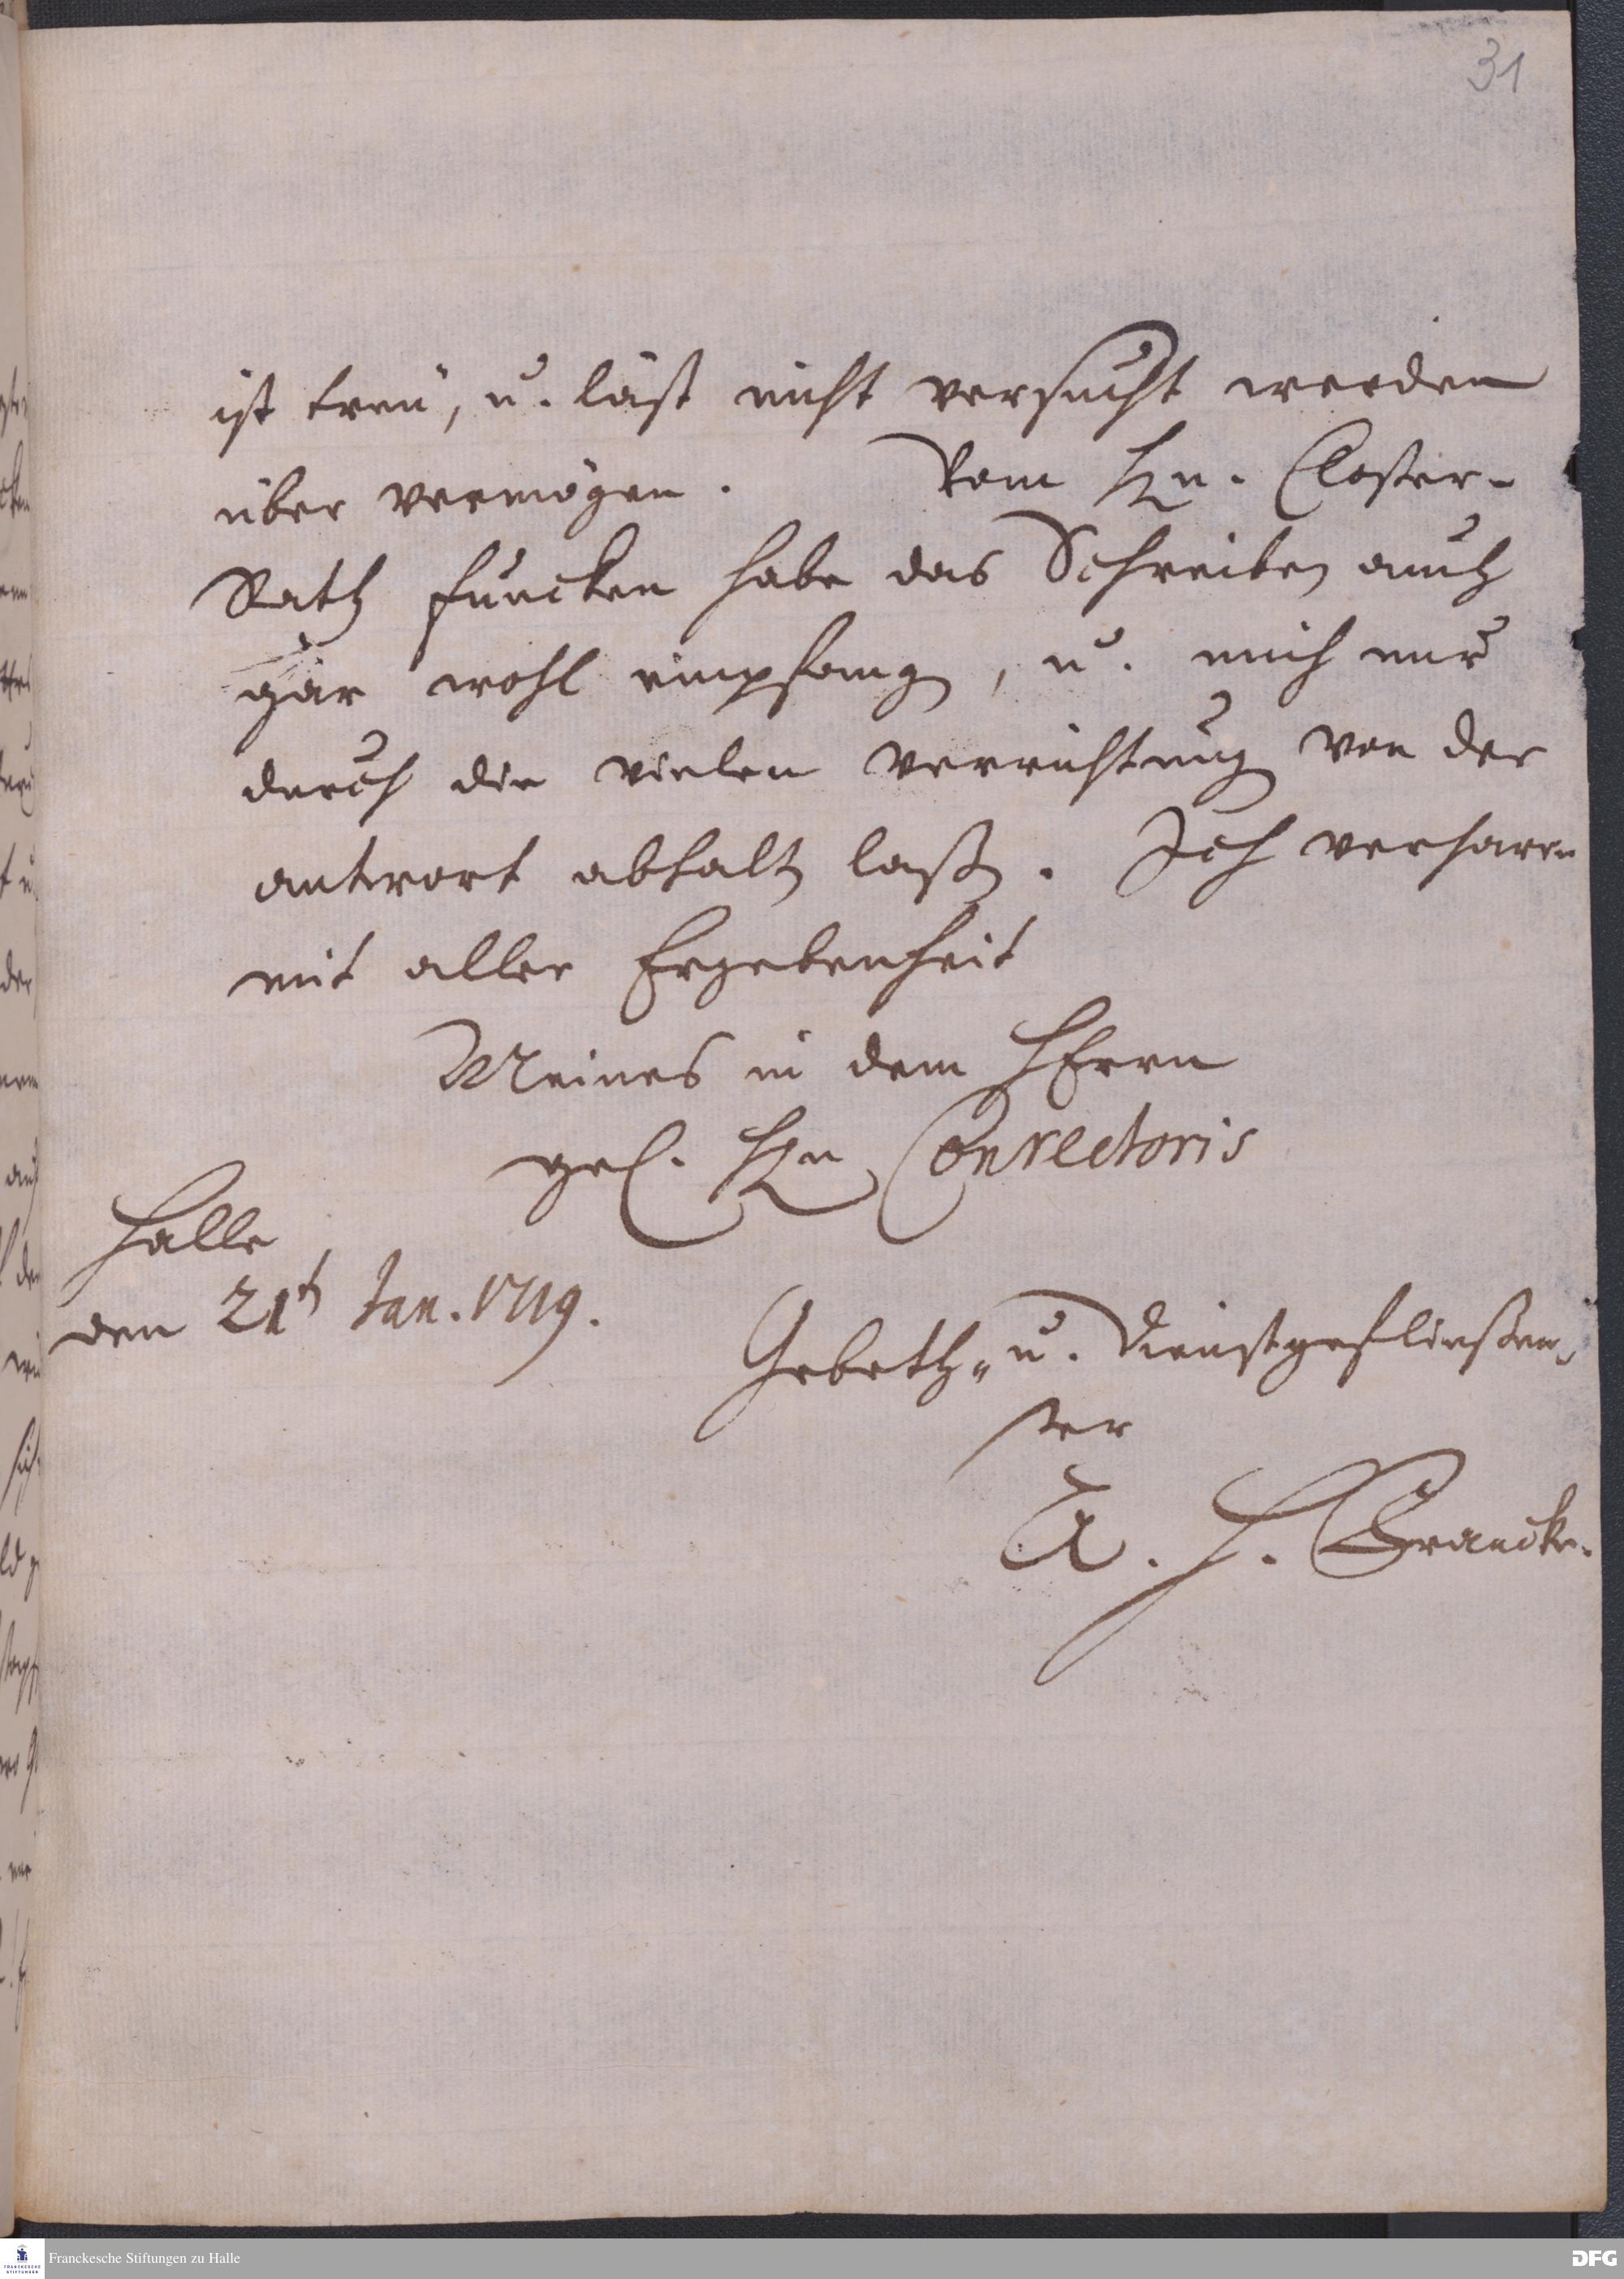 31
ist treu, u. läst nicht versucht werden
über vermögen. Vom Hn. Closter-
Rath Funcken habe das Schreiben auch
gar wohl empfang, u. mich nur
durch die vielen verrichtung von der
antwort abhalt laß. Ich verharre
mit aller Ergebenheit
Meines in dem HErrn
gel. Hn Conrectoris
Halle
den 21t Jan. 1719.
Gebeth- u. Dienstgefließen-
ster
A. H. Francke.
Franckesche Stiftungen zu Halle
FRANCKESCHE STIFTUNGEN
DFG